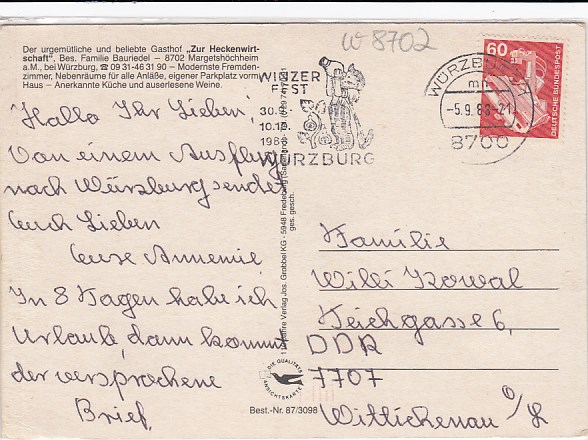 W 8702
Der urgemütliche und beliebte Gasthof „Zur Heckenwirt-
schaft“, Bes. Familie Bauriedel – 8702 Margetshöchheim
a.M., bei Würzburg, ☎ 09 31-46 31 90 – Modernste Fremden-
zimmer, Nebenräume für alle Anläße, eigener Parkplatz vorm
Haus – Anerkannte Küche und auserlesene Weine.
WINZER
FEST
30.9.
10.10.
1988
WÜRZBURG
WÜRZBURG
-5.9.88-21
8700
60
DEUTSCHE BUNDESPOST
Hallo Ihr Lieben,
Von einem Ausflug
nach Würzburg sendet
Euch Lieben
Eure Annemie.
In 8 Tagen habe ich
Urlaub, dann kommt
der versprochene
Brief.
Familie
Willi Kowal
Teichgasse 6,
DDR
7707
Wittichenau O/L
Verlag Jos. Grobbel KG - 5948 Fredeburg
ges. gesch.
DIE QUALITÄTS
ANSICHTSKARTE
Best.-Nr. 87/3098